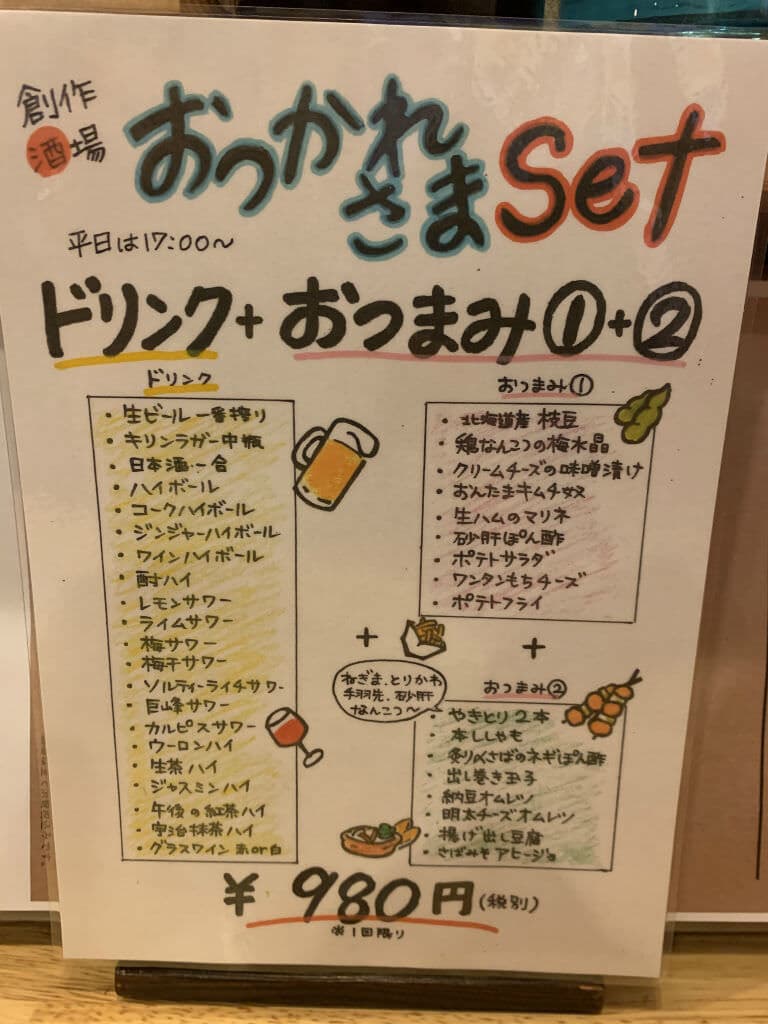 創作
酒場
おつかれ
さま Set
平日は17:00〜
ドリンク+おつまみ①+②
ドリンク
・生ビール一番搾り
・キリンラガー中瓶
・日本酒…一合
・ハイボール
・コークハイボール
・ジンジャーハイボール
・ワインハイボール
・酎ハイ
・レモンサワー
・ライムサワー
・梅サワー
・梅干サワー
・ソルティーライチサワー
・巨峰サワー
・カルピスサワー
・ウーロンハイ
・生茶ハイ
・ジャスミンハイ
・午後の紅茶ハイ
・宇治抹茶ハイ
・グラスワイン 赤or白
おつまみ①
・北海道産 枝豆
・鶏なんこつの梅水晶
・クリームチーズの味噌漬け
・おんたまキムチ奴
・生ハムのマリネ
・砂肝ぽん酢
・ポテトサラダ
・ワンタンもちチーズ
・ポテトフライ
+
+
ねぎま、とりかわ
手羽先、砂肝
なんこつ〜
おつまみ②
・やきとり2本
・本ししゃも
・炙りべさばのネギぽん酢
・出し巻き玉子
・納豆オムレツ
・明太チーズオムレツ
・揚げ出し豆腐
・さばみそアヒージョ
¥980円(税別)
※1回限り